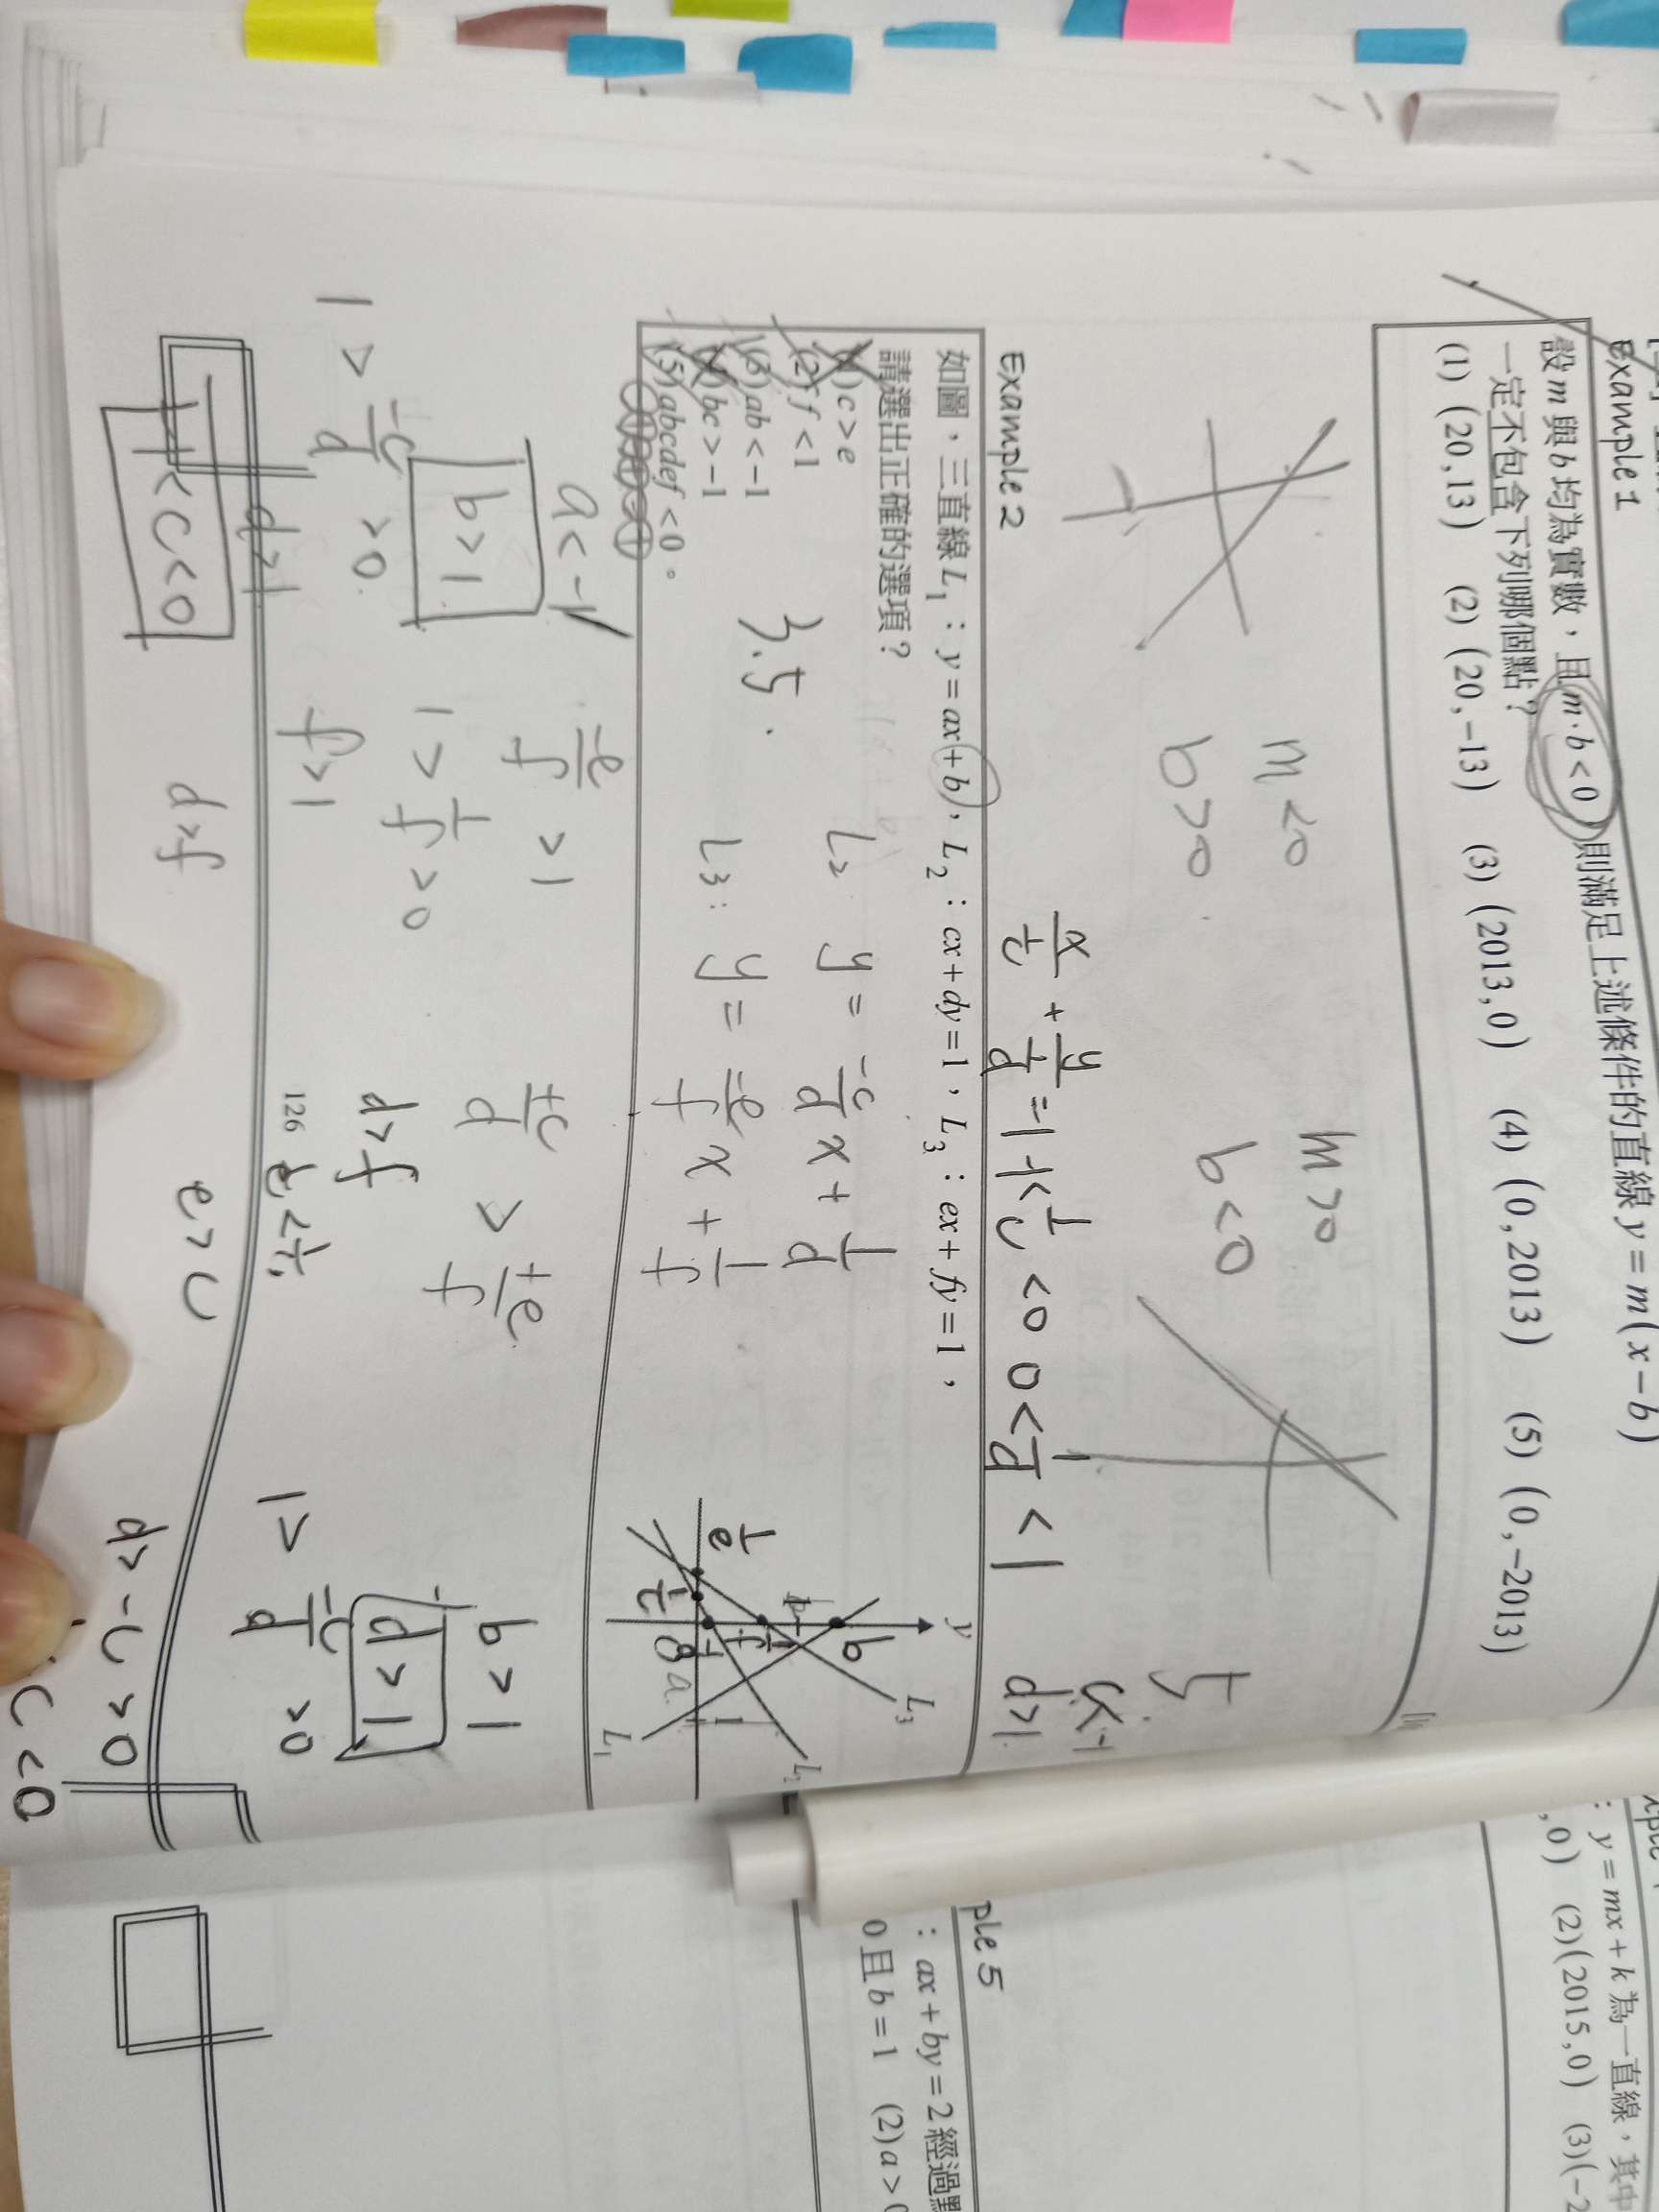 Example 1
設 m 與 b 均為實數，且 m·b<0，則滿足上述條件的直線 y=m(x-b)
一定不包含下列哪個點？
(1) (20,13) (2) (20,-13) (3) (2013,0) (4) (0,2013) (5) (0,-2013)
m<0
b>0
m>0
b<0
Example 2
x/(1/c) + y/(1/d) = 1
-1<1/c<0 0<1/d<1
c<-1
d>1
如圖，三直線 L₁：y=ax+b，L₂：cx+dy=1，L₃：ex+fy=1，
請選出正確的選項？
(1) c>e
(2) f<1
(3) ab<-1
(4) bc>-1
(5) abcdef<0。
3.5.
L₂ y = -c/d x + 1/d
L₃: y = -e/f x + 1/f
y
L₃
b
1/f
1/d
1/e
1/c
a
L₂
L₁
a<-1
b>1
1 > -c/d >0
d>1
-1<c<0
-e/f >1
1> 1/f >0
f>1
d>f
+c/d > +e/f
d>f
126
1/e < 1/c
e>c
b>1
d>1
1> -c/d >0
d>-c>0
c<0
ple 5
：ax+by=2 經過點
0且 b=1 (2) a>0
：y=mx+k 為一直線，其中
,0) (2) (2015,0) (3) (-2